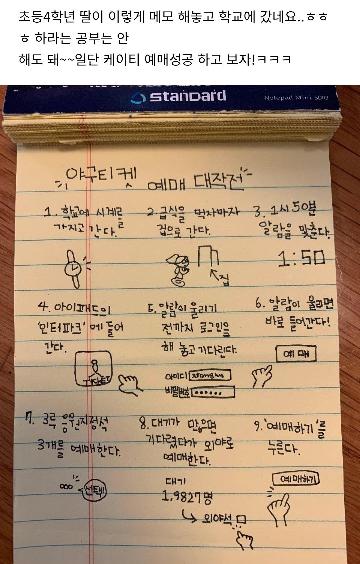 초등4학년 딸이 이렇게 메모 해놓고 학교에 갔네요..ㅎㅎ
ㅎ 하라는 공부는 안
해도 돼~~일단 케이티 예매성공 하고 보자!ㅋㅋㅋ
standard
Notepad Mini 50P
야구티케 예매 대작전
1. 학교에 시계를
가지고 간다.
2. 급식을 먹자마자
집으로 간다.
집
3. 1시50분
알람을 맞춘다.
1:50
4. 아이패드의
'인터파크'에 들어
간다.
5. 알람이 울리기
전까지 로그인을
해 놓고 기다린다.
아이디
비밀번호
6. 알람이 울리면
바로 들어간다!
예매
7. 3루 응원지정석
3개를 예매한다.
선택!
8. 대기가 많으면
기다렸다가 외야로
예매한다.
대기
1,9827명
외야석
9. '예매하기'를
누른다.
예매하기